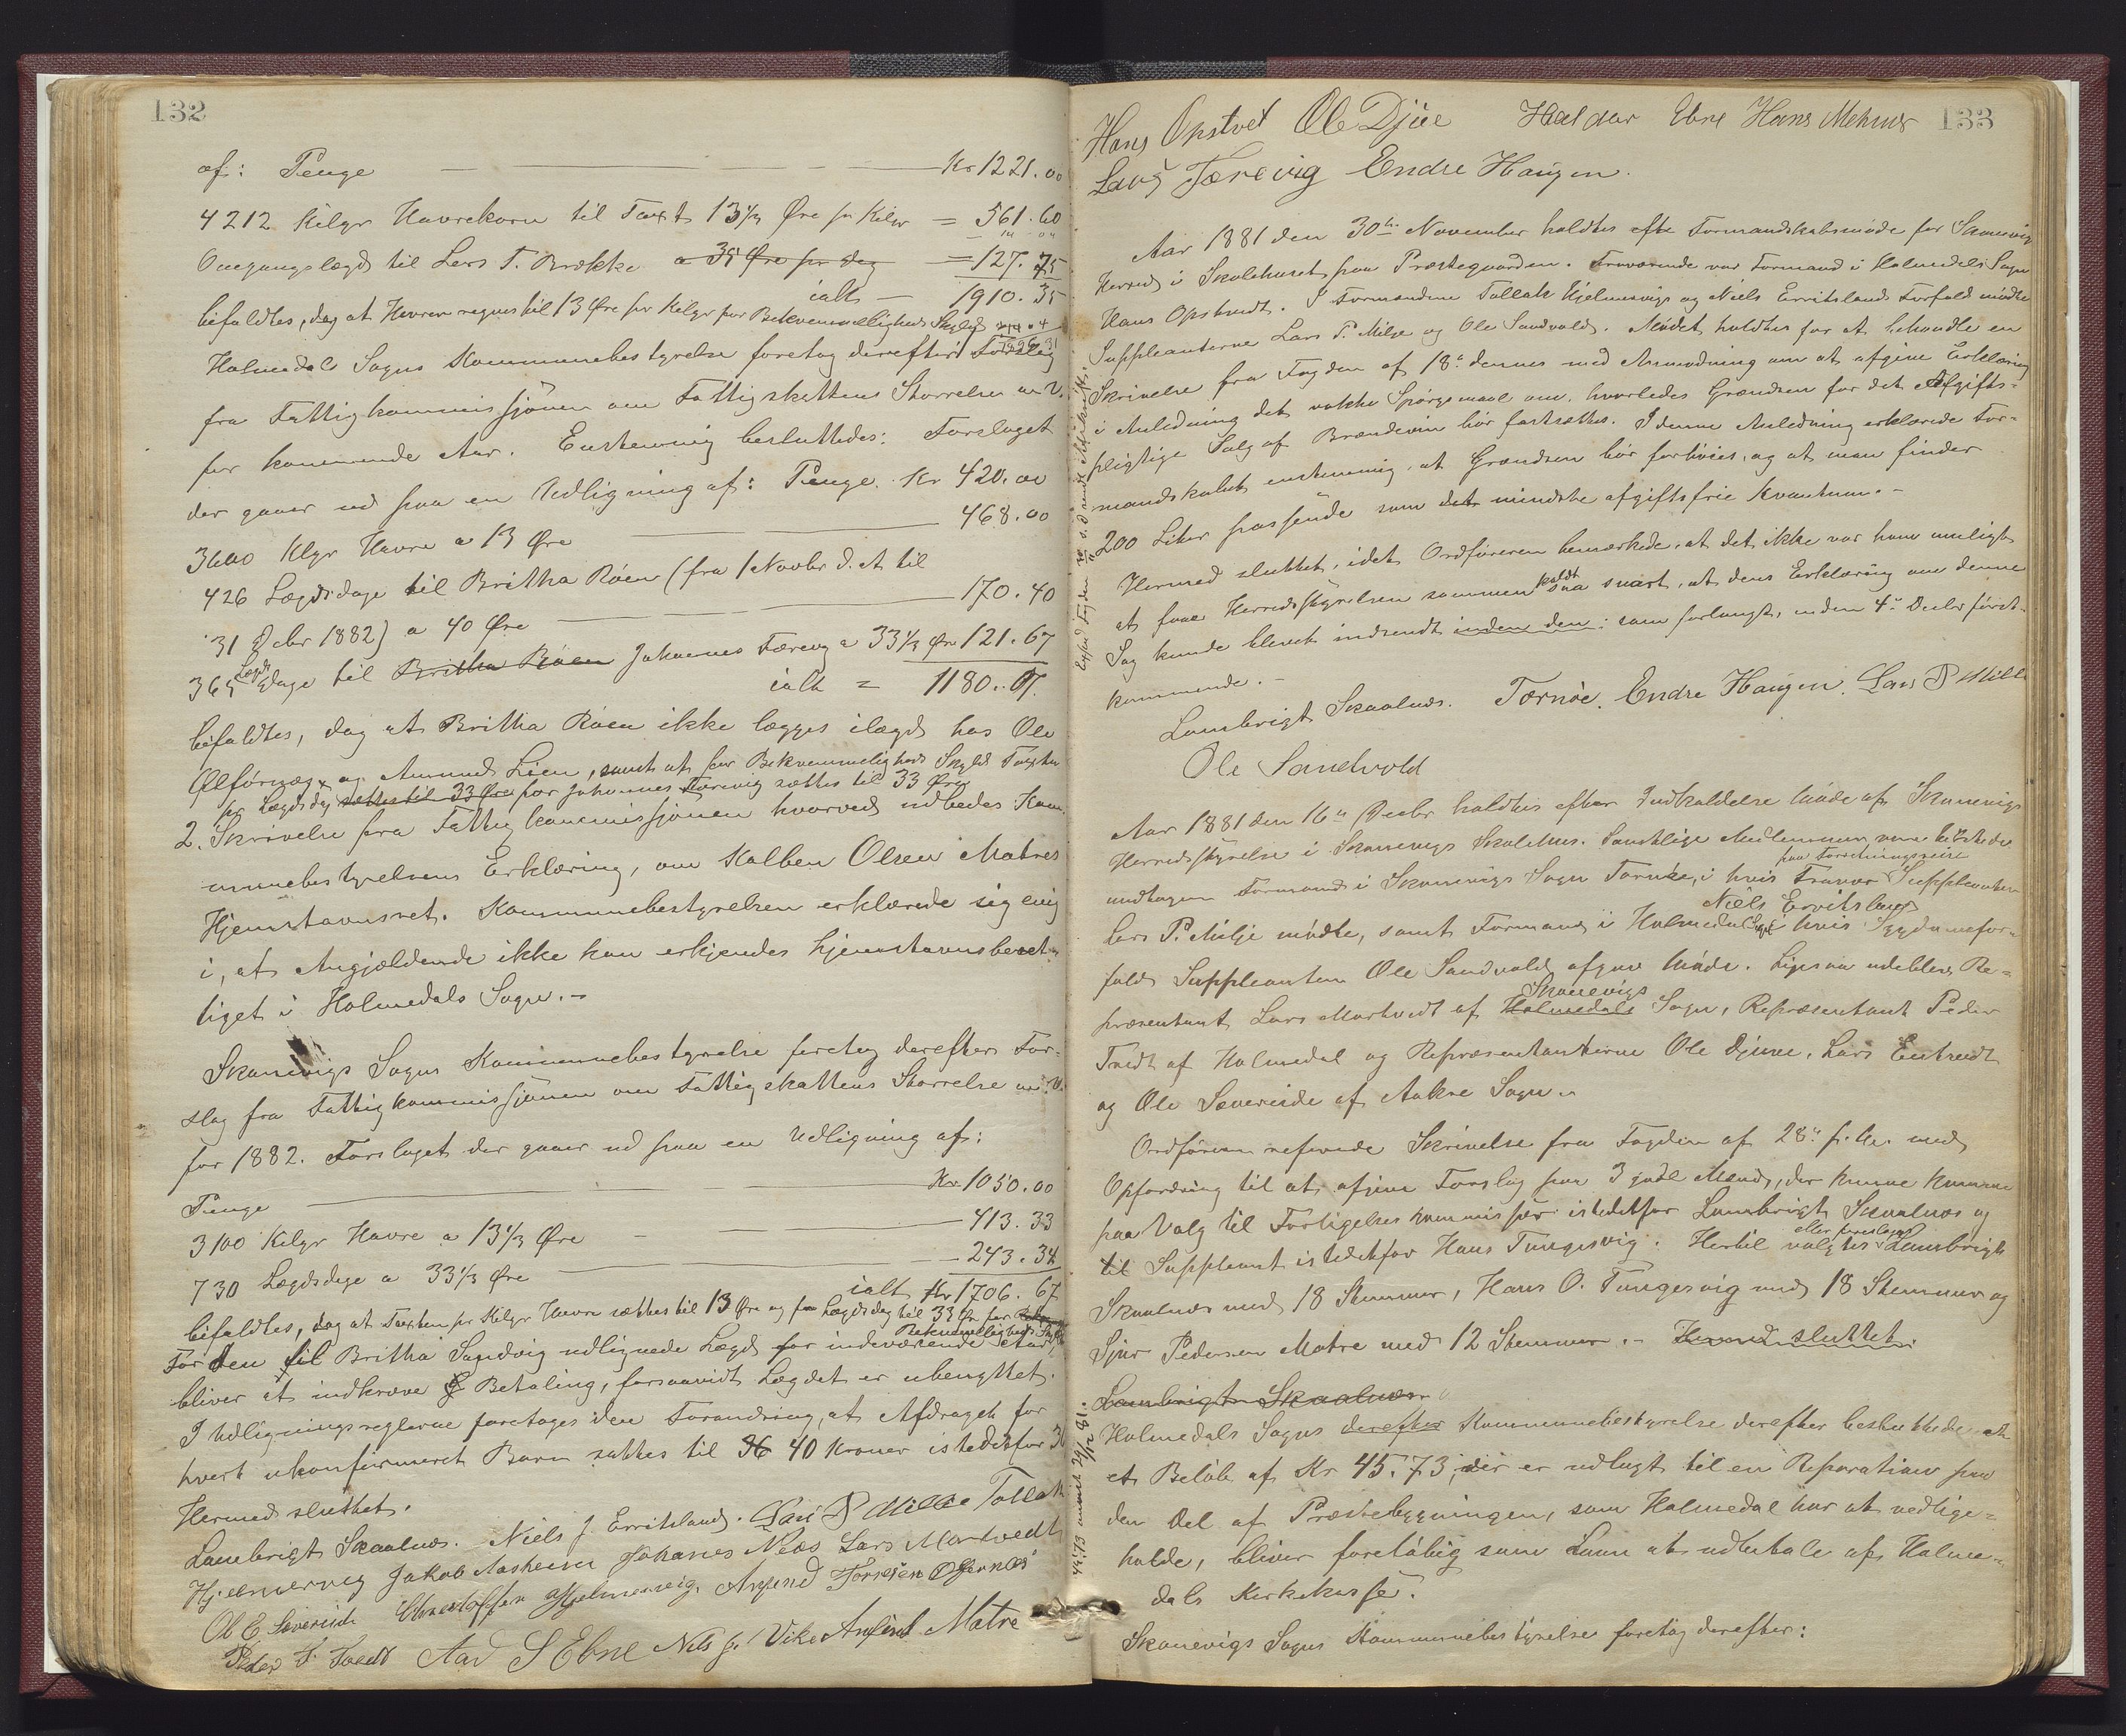 132
af: Penge Kr 1221.00
4212 Kilgr Havrekorn til Taxt 13 1/3 Øre pr Kilgr = 561.60
Omgangslægd til Lars T. Brække a 35 Øre pr dag = 127.75
ialt 1910.35
bifaldtes, dog at Havren regnes til 13 Øre pr Kilgr for Bekvemmeligheds Skyld
Holmedals Sogns Kommunebestyrelse foretog derefter: Forslag
fra Fattigkommissjonen om Fattigskattens Størrelse m. V.
for kommende Aar. Enstemmig besluttedes: Forslaget
der gaaer ud paa en Udligning af: Penge Kr 420.00
3600 Klgr Havre a 13 Øre 468.00
426 Lægdsdage til Britha Röen (fra 1 Novbr d. A. til
31 Debr 1882) a 40 Øre 170.40
365 Lægdsdage til Britha Röen Johannes Færevig a 33 1/3 Øre 121.67
ialt = 1180.07.
bifaldtes, dog at Britha Röen ikke lægges ilægd hos Ole
Ølförnæs og Amund Lien, samt at for Bekvemmeligheds Skyld Taxten
pr Lægdsdag sættes til 33 Øre for Johannes Færevig sættes til 33 Øre
2. Skrivelse fra Fattigkommissjonen hvorved udbedes Kom-
munebestyrelsens Erklæring, om Kolben Olsen Matres
Hjemstavnsret. Kommunebestyrelsen erklærede sig enig
i, at Angjældende ikke kan erkjendes hjemstavnsberet-
tiget i Holmedals Sogn.-
Skonevigs Sogns Kommunebestyrelse foretog derefter: For-
slag fra Fattigkommissjonen om Fattigskattens Størrelse m. V.
for 1882. Forslaget der gaaer ud paa en Udligning af:
Penge Kr 1050.00
3100 Kilgr Havre a 13 1/3 Øre 413.33
730 Lægdsdage a 33 1/3 Øre 243.34
ialt Kr 1706.67
bifaldtes, dog at Taxten pr Kilgr Havre sættes til 13 Øre og pr Lægdsdag til 33 Øre for
Bekvemmeligheds Skyld
For den til Britha Sandvig udlignede Lægd for indeværende Aar
bliver at indkræve Betaling, forsaavidt Lægdet er ubenyttet.
I Udligningsreglerne foretages den Forandring, at Afdraget for
hvert ukonfirmeret Barn sættes til 36 40 Kroner istedetfor 36
Hermed sluttet.
Lambrigt Skaalnæs. Niels J. Erritsland. Lars P Milje Tollak
Hjelmervig Jakob Aasheim Johanes Næs Lars Martvedt
Ole E. Severeide Christoffer Hjelmervig. Amund Tørresen Øfernæs
Peder T. Tvedt Aad S Ebne Nils J. Vike Anfind Matre
133
Hans Opstvet Ole Djuve Haldor Ebne Hans Mehmer
Lars Færevig Endre Haugen.
Aar 1881 den 30te November holdtes efter Formandskabsmøde for Skonevig
Herred i Skolehuset paa Præstegaarden. Fraværende var Formand i Holmedals Sogn
Hans Opstvedt. I Formændene Tollak Hjelmervigs og Niels Erritslands Forfald mødte
Suppleanterne Lars P. Milje og Ole Sandvold. Mødet holdtes for at behandle en
Skrivelse fra Fogden af 18de dennes med Anmodning om at afgive Erklæring
i Anledning det vakte Spørgsmaal om, hvorledes Grændsen for det Afgifts-
pligtige Salg af Brændevin bør fastsættes. I denne Anledning erklærede For-
mandskabet enstemmig, at Grændsen bør forhøies, og at man finder
200 Liter passende som det mindste afgiftsfrie Kvantum.-
Hermed sluttet, idet Ordføreren bemærkede, at det ikke var ham muligt
at faae Herredsstyrelsen sammenkaldt saa snart, at dens Erklæring om denne
Sag kunde blevet indsendt inden den: som forlangt, inden 4de Decbr først-
kommende.-
Lambrigt Skaalnæs. Tornöe. Endre Haugen. Lars P Milje
Ole Sandvold
Aar 1881 den 16de Decbr holdtes efter Indkaldelse Møde af Skonevigs
Herredsstyrelse i Skonevigs Skolehus. Samtlige Medlemmer vare tilstede
undtagen Formand i Skonevigs Sogn Tornöe, i hvis Fravær paa Forretningsreise Suppleanten
Lars P. Milje mødte, samt Formand i Holmedal Sogn Niels Erritsland i hvis Sygdomsfor-
fald Suppleanten Ole Sandvold afgav Møde. Ligesaa udeblev Re-
præsentant Lars Martvedt af Holmedals Skonevigs Sogn, Repræsentant Peder
Tvedt af Holmedal og Repræsentanterne Ole Djuve, Lars Eintvedt
og Ole Severeide af Aakre Sogn.-
Ordføreren refererede Skrivelse fra Fogden af 28de f. M. med
Opfordring til at afgive Forslag paa 3 gode Mænd, der kunne komme
paa Valg til Forligelseskommissær istedetfor Lambrigt Skaalnæs og
til Suppleant istedetfor Hans Tungesvig. Hertil valgtes eller foresloges Lambrigt
Skaalnæs med 18 Stemmer, Hans O. Tungesvig med 18 Stemmer og
Sjur Pedersen Matre med 12 Stemmer.- Hermed sluttet.
Lambrigt Skaalnæs
Holmedals Sogns derefter Kommunebestyrelse derefter besluttede at
et Beløb af Kr 45.73, der er udlagt til en Reparation paa
den Del af Præstebygningen, som Holmedal har at vedlige-
holde, bliver foreløbig som Laan at udbetale af Holme-
dals Kirkekasse.
Skonevigs Sogns Kommunebestyrelse foretog derefter: